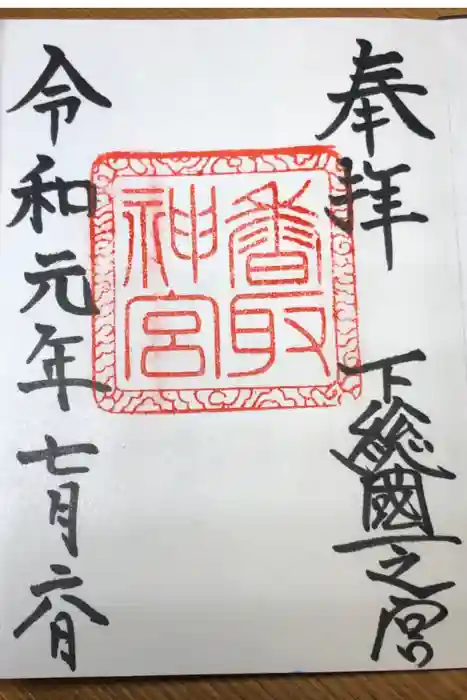 奉拝
下総國一之宮
香取神宮
令和元年七月六日